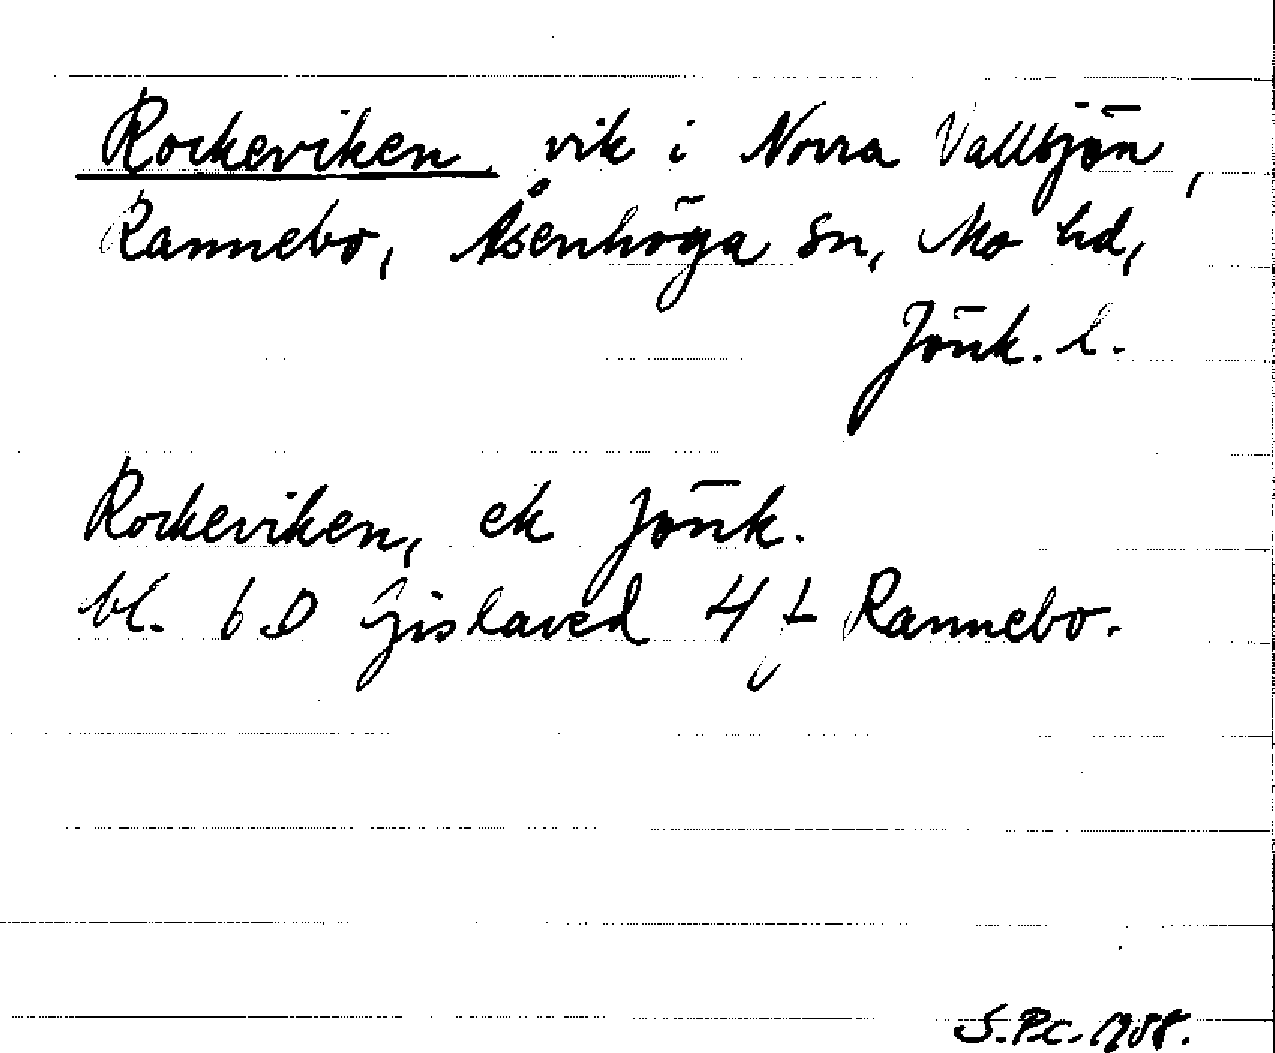 Rockeviken, vik i Norra Vallsjön,
Rannebo, Åsenhöga sn, Mo hd,
Jönk. l.
Rockeviken, ek Jönk.
bl. 6D Gislaved 4 f Rannebo.
S.P.C. 1958.